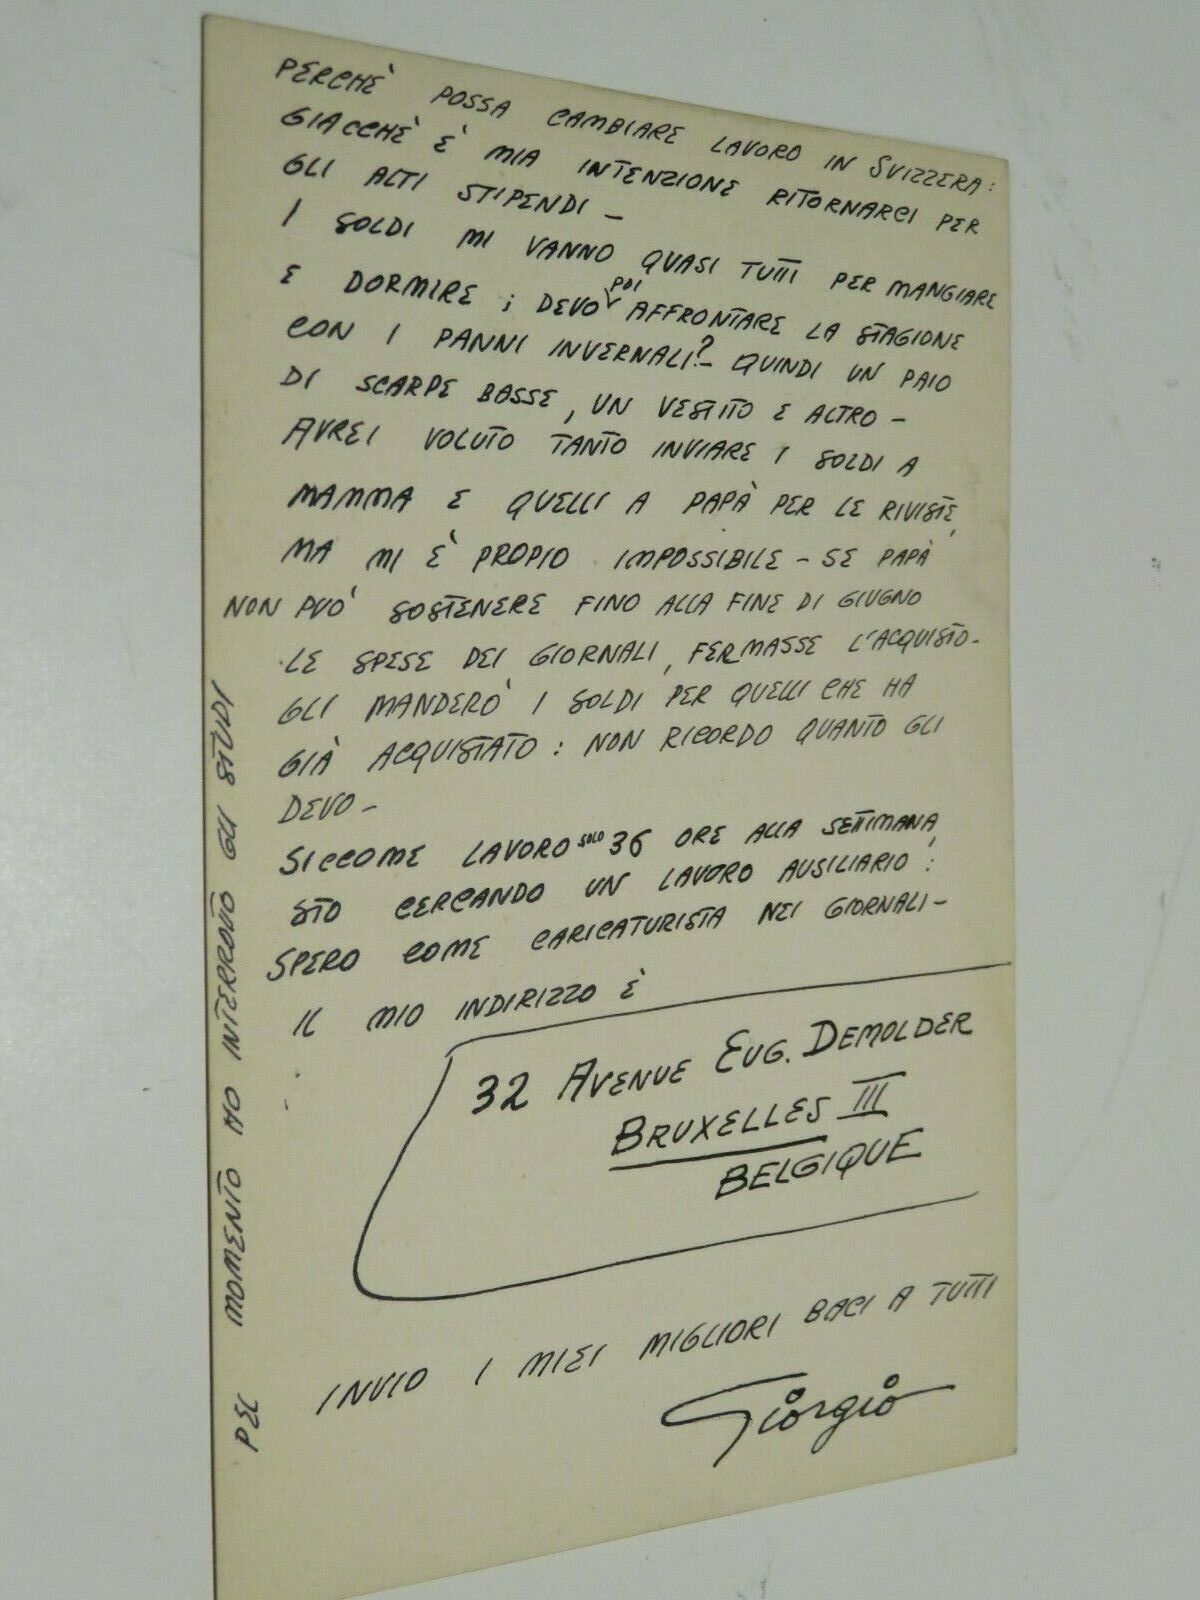 PERCHÈ POSSA CAMBIARE LAVORO IN SVIZZERA:
GIACCHÈ È MIA INTENZIONE RITORNARCI PER
GLI ALTI STIPENDI –
I SOLDI MI VANNO QUASI TUTTI PER MANGIARE
E DORMIRE; DEVO POI AFFRONTARE LA STAGIONE
CON I PANNI INVERNALI? – QUINDI UN PAIO
DI SCARPE BASSE, UN VESTITO E ALTRO –
AVREI VOLUTO TANTO INVIARE I SOLDI A
MAMMA E QUELLI A PAPÀ PER LE RIVISTE,
MA MI È PROPIO IMPOSSIBILE – SE PAPÀ
NON PUO' SOSTENERE FINO ALLA FINE DI GIUGNO
LE SPESE DEI GIORNALI, FERMASSE L'ACQUISTO –
GLI MANDERO' I SOLDI PER QUELLI CHE HA
GIÀ ACQUISTATO: NON RICORDO QUANTO GLI
DEVO –
SICCOME LAVORO SOLO 36 ORE ALLA SETTIMANA,
STO CERCANDO UN LAVORO AUSILIARIO:
SPERO COME CARICATURISTA NEI GIORNALI –
IL MIO INDIRIZZO È
32 AVENUE EUG. DEMOLDER
BRUXELLES III
BELGIQUE
INVIO I MIEI MIGLIORI BACI A TUTTI
Giorgio
PEL MOMENTO HO INTERROTTO GLI STUDI